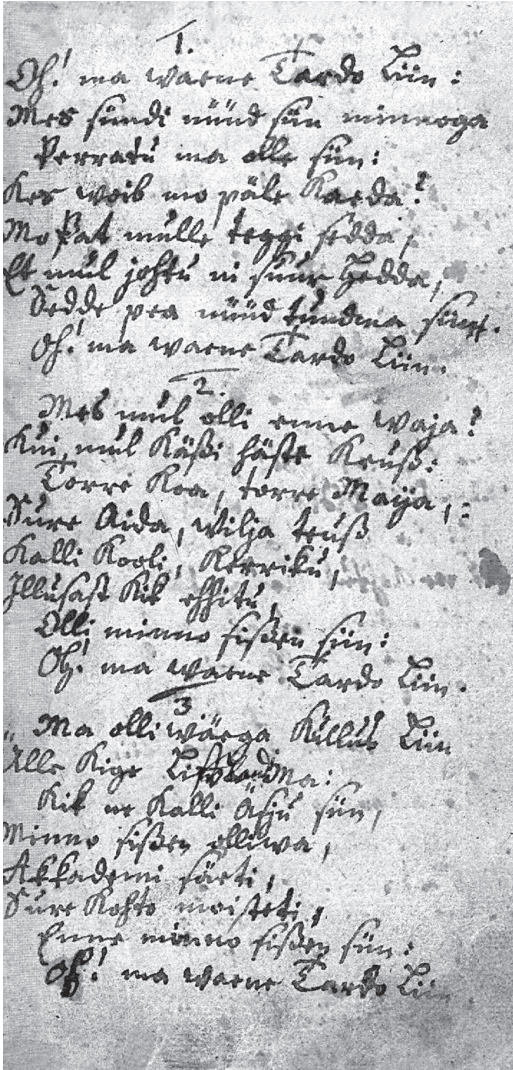 1.
Oh! ma waene Tardo Liin:
Mes sündi nüüd siin minnoga
Perratu ma olle siin:
Kes woib mo päle Kaeda?
Mo Pat mulle teggi sedda,
Et mul johtu ni suur Hedda,
Sedde pea nüüd tundma siin.
Oh! ma waene Tardo Liin.
2.
Mes mul olli enne waja?
Kui mul Käßi häste Keuß:
Torre Koa, torre Maija,:
Sure Aida, wilja teuß
Kalli Kooli, Kerriku,
Illusast Kik ehhitu,
Olli minno sißen siin:
Oh! ma waene Tardo Liin.
3
„ Ma olli wäega Kullus Liin
Ülle Kige Ma:
Kik ne Kalli Asju siin,
Minno sißen olliwa,
Akkademi säeti,
Sure Kohto moisteti,
Enne minno sißen siin:
Oh! ma waene Tardo Liin